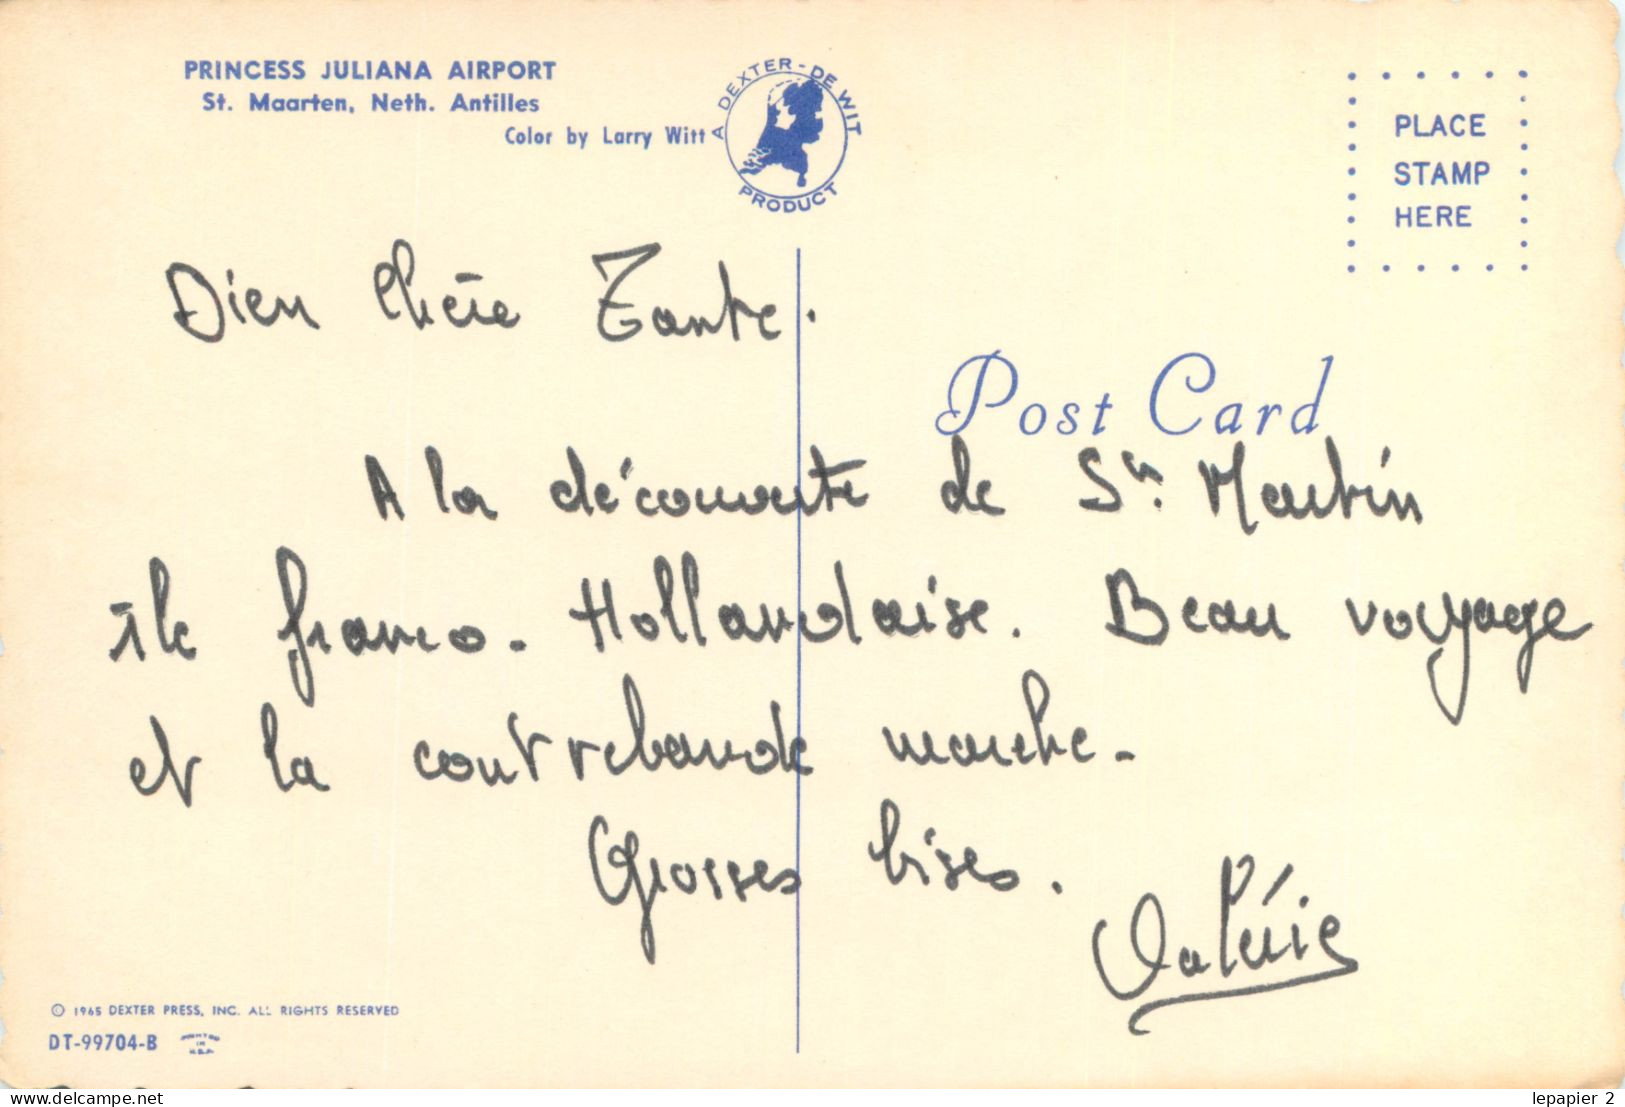 PRINCESS JULIANA AIRPORT
St. Maarten, Neth. Antilles
Color by Larry Witt
A DEXTER-DE WIT
PRODUCT
PLACE
STAMP
HERE
Post Card
Bien Chère Tante.
A la découverte de St. Martin
île franco-Hollandaise. Beau voyage
et la contrebande marche.
Grosses bises.
Valérie
© 1965 DEXTER PRESS, INC. ALL RIGHTS RESERVED
DT-99704-B
PRINTED
IN
U.S.A.
delcampe.net
lepapier 2